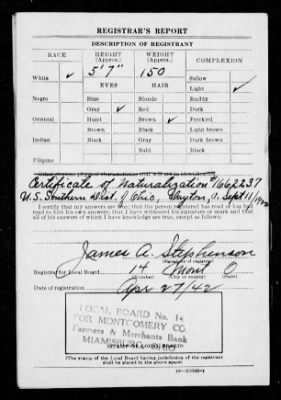 REGISTRAR'S REPORT
DESCRIPTION OF REGISTRANT
RACE
HEIGHT (Approx.)
WEIGHT (Approx.)
COMPLEXION
White ✓
5' 7"
150
Sallow
EYES
HAIR
Light ✓
Negro
Blue
Blonde
Ruddy
Gray ✓
Red
Dark
Oriental
Hazel
Brown ✓
Freckled
Brown
Black
Light brown
Indian
Black
Gray
Dark brown
Bald
Black
Filipino
Certificate of Naturalization #1662237
U.S. Southern Dist. of Ohio, Dayton, O. Sept 11/1922
I certify that my answers are true; that the person registered has read or has had
read to him his own answers; that I have witnessed his signature or mark and that
all of his answers of which I have knowledge are true, except as follows:
James A. Stephenson
(Signature of registrar)
Registrar for Local Board 14 Mont O
Date of registration Apr 27/42
LOCAL BOARD No. 14
FOR MONTGOMERY CO.
Farmers & Merchants Bank
MIAMISBURG, OHIO
(The stamp of the Local Board having jurisdiction of the registrant
shall be placed in the above space)